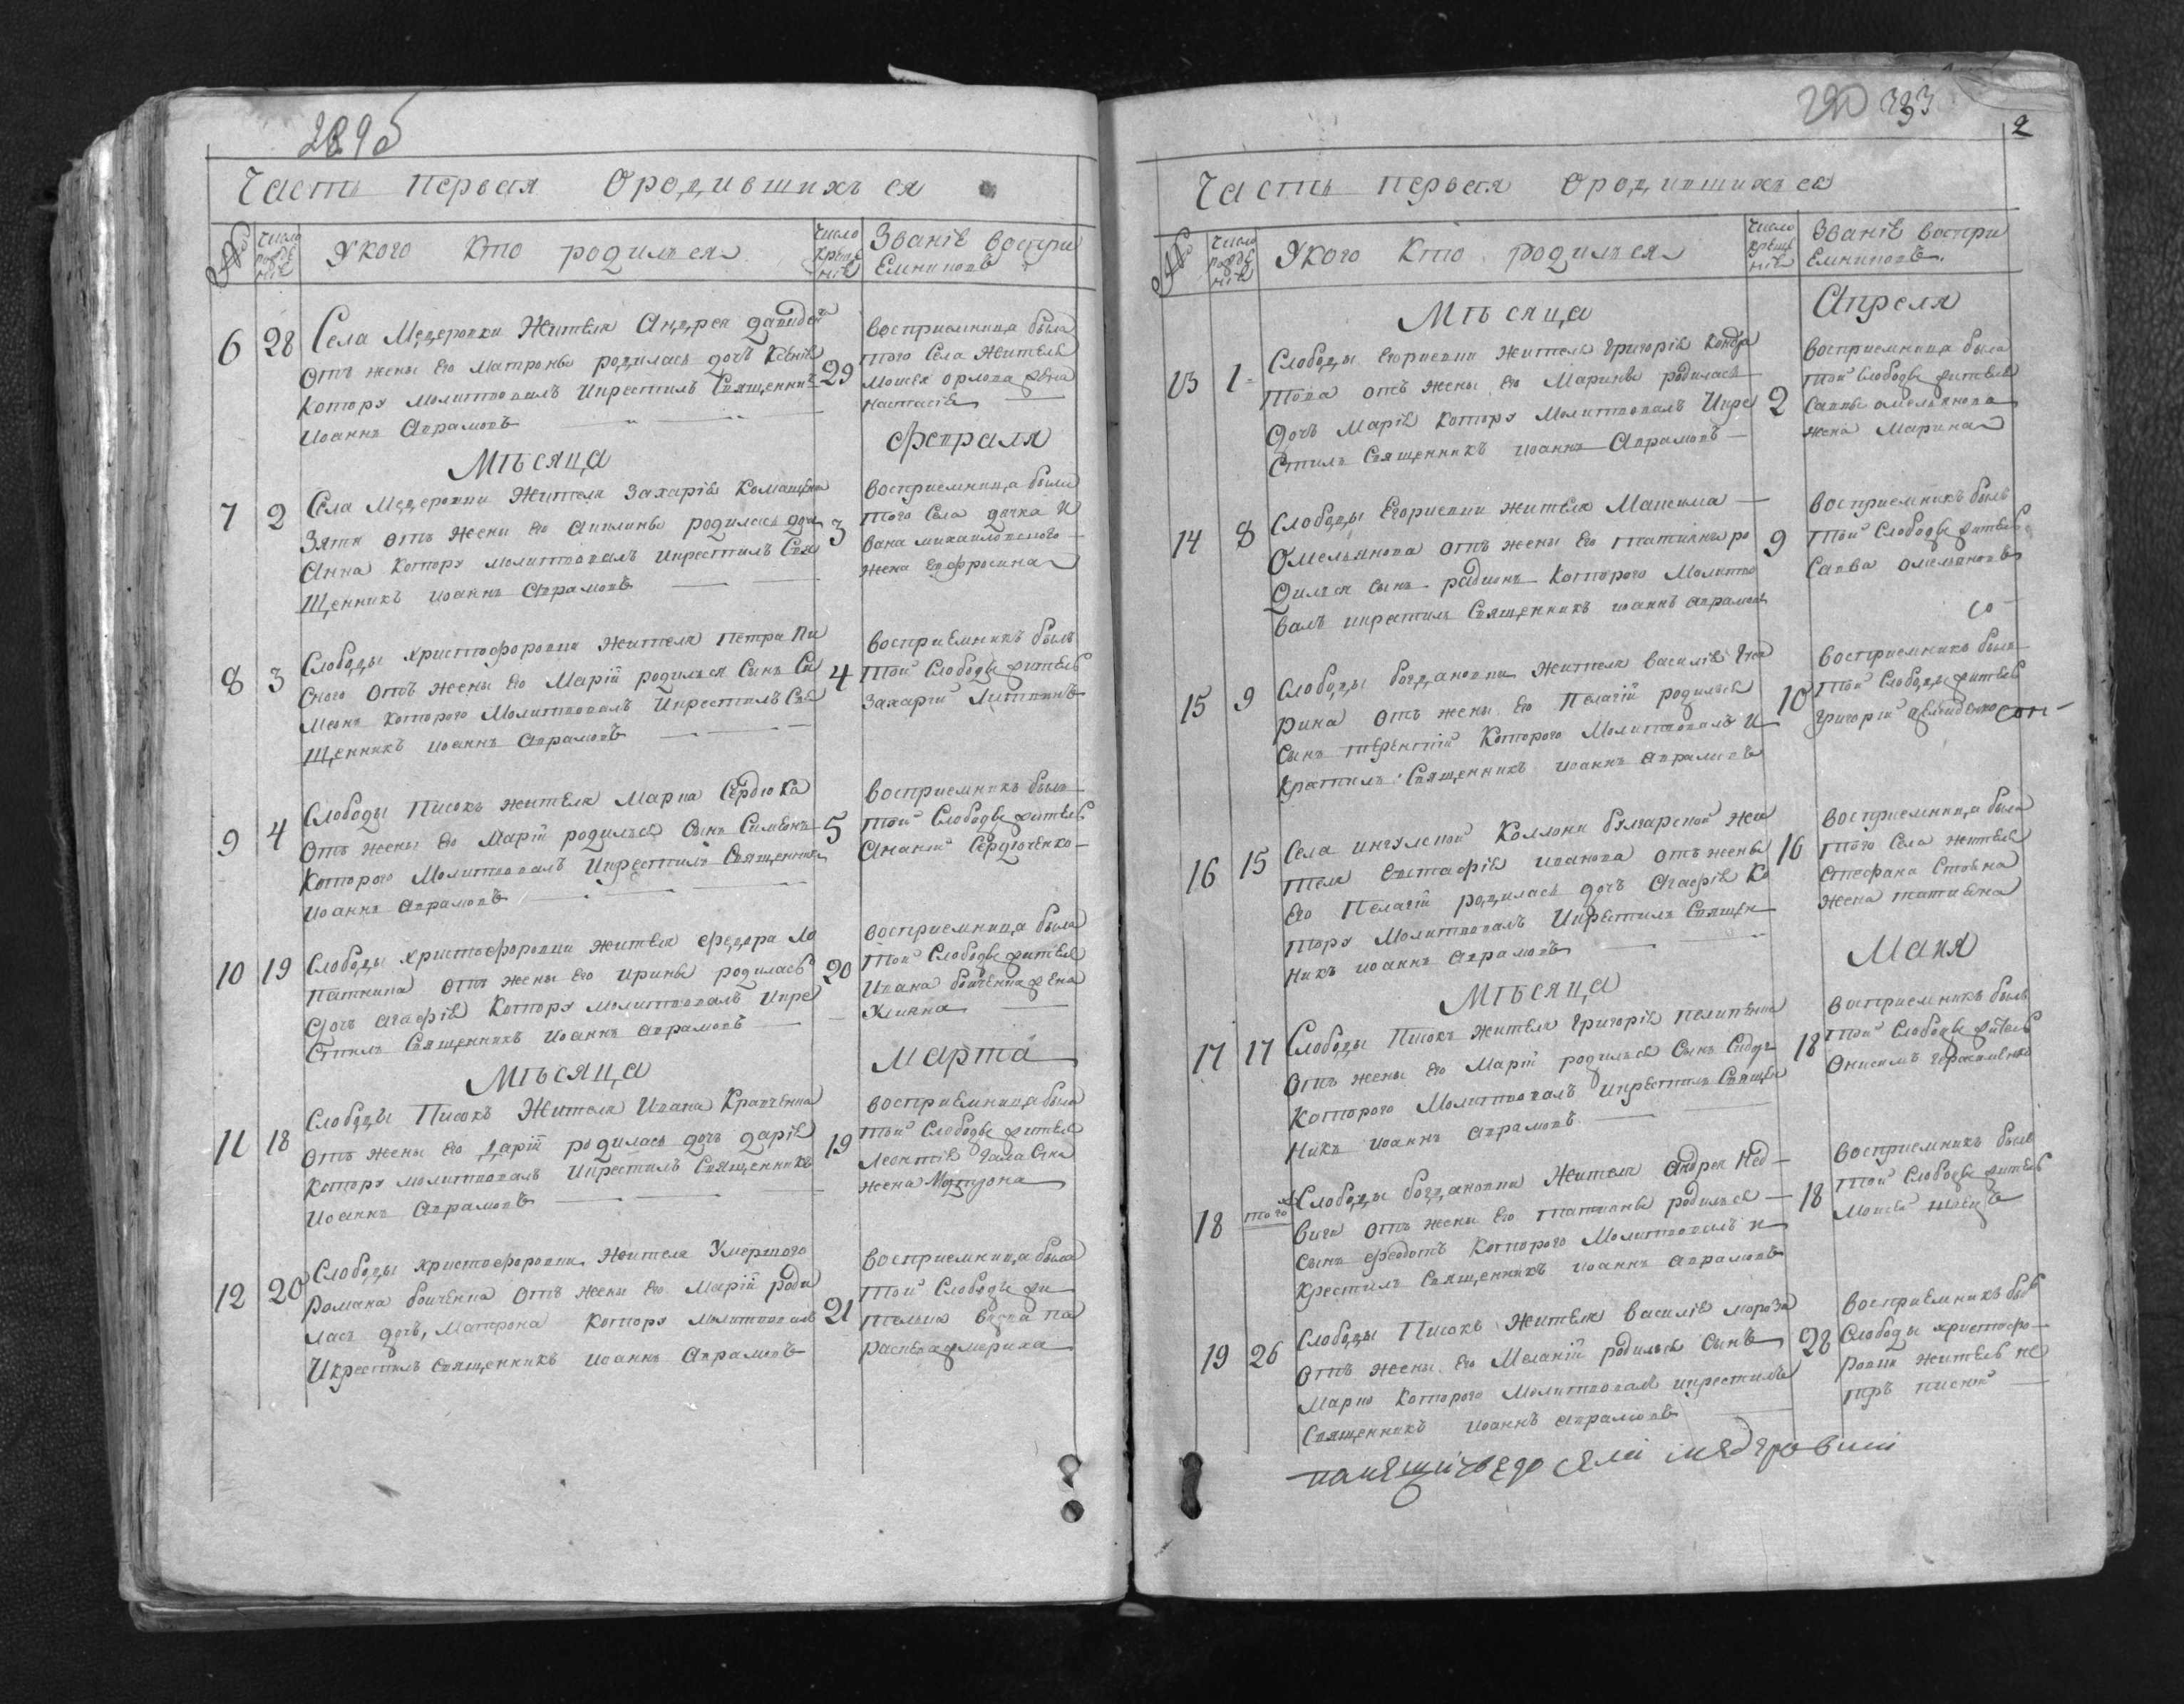 289б
Часть первая Ородившихъ ся
№
Число рожде нія
Укого Кто родился
Число Креще нія
Званіе воспри
Емниковъ
6 28 Села Медеровки Жителя Андрея давиден
Отъ жены Его Матроны родилась дочь Ксенія
Котору Молитвовалъ Икрестилъ Священникъ
Иоаннъ Аврамовъ
29
восприемница была
того Села Жителя
Мосея Орлова жена
настасія
Мѣсяца Февраля
7 2 Села Медеровки Жителя Захарія
Зятя отъ Жены Его Акилины родилась доч
Анна Котору молитвовалъ Икрестилъ Свя
Щенникъ иоаннъ Аврамовъ
3
восприемница была
того Села дочка И
вана михаиловского
жена Ефросина
8 3 Слободы христофоровки Жителя Петра Пи
Сного Отъ жены Его Марій родился Сынъ Си
Меонъ Которого Молитвовалъ Икрестилъ Свя
Щенникъ иоаннъ Аврамовъ
4
восприемникъ былъ
той Слободы житель
Захарій Литвинъ
9 4 Слободы Писокъ жителя Марка Сердюка
Отъ жены Его Марій родился Сынъ Симеонъ
Которого Молитвовалъ Икрестилъ Священникъ
Иоаннъ Аврамовъ
5
восприемникъ былъ
той Слободы житель
Ананій Сердюченко
10 19 Слободы христофоровки жителя Федора Ло
паткина отъ жены Его ирины родилась
дочь агафія Котору молитвовалъ Икре
Стилъ Священникъ Иоаннъ Аврамовъ
20
восприемница была
той Слободы жителя
Ивана Бойченка жена
Улияна
Мѣсяца Марта
11 18 Слободы Писокъ Жителя Ивана Кравченка
Отъ жены Его Дарій родилась дочь дарія
Котору молитвовалъ Икрестилъ Священникъ
Иоаннъ Аврамовъ
19
восприемница была
той Слободы жителя
Леонтія
жена Мотрона
12 20 Слободы христофоровки Жителя Умершого
Романа бойченка Отъ жены Его Марій роди
лась дочь, Матрона Котору молитвовалъ
Икрестилъ Священникъ Иоаннъ Аврамовъ
21
восприемница была
той Слободы жи
телька вдова па
расковия
290 393
2
Часть первая Ородившихъ ся
№
Число рожде нія
Укого Кто родился
Число креще нія
Званіе воспри
Емниковъ
Мѣсяца Апреля
13 1 Слободы Егориевки Жителя Григорія Кондра
това отъ жены Его Марины родилась
дочь Марія Котору Молитвовалъ Икре
Стилъ Священникъ иоаннъ Аврамовъ
2
восприемница была
той Слободы жителя
Саввы омельянова
жена Марина
14 8 Слободы Егориевки жителя Максима
Омельянова отъ жены Его татияны ро
дился Сынъ радионъ Которого Молитво
валъ икрестилъ Священникъ иоаннъ аврамовъ
9
восприемникъ былъ
той Слободы житель
Савва омельяновъ
15 9 Слободы богдановки жителя василія
рина отъ жены Его Пелагій родился
Сынъ терентій Которого Молитвовалъ И
Крестилъ Священникъ иоаннъ Аврамовъ
10
восприемникъ былъ
той Слободы житель
григорій
16 15 Села ингулской Коллони булгарской Жи
теля Евстафія иванова отъ жены
Его Пелагій родилась дочь Агафія Ко
тору Молитвовалъ Икрестилъ Священ
никъ иоаннъ Аврамовъ
16
восприемница была
того Села жителя
Стефана Стояна
жена татияна
Мѣсяца Маия
17 17 Слободы Писокъ жителя Григорія пелипенка
Отъ жены Его Марій родился Сынъ Сидоръ
Которого Молитвовалъ икрестилъ Священ
Никъ иоаннъ Аврамовъ
18
восприемникъ былъ
той Слободы житель
Онисимъ Герасименко
18 того ж Слободы богдановки Жителя Андрея Нед
вига отъ жены Его татияны родился
сынъ Феодотъ Которого Молитвовалъ и
Крестилъ Священникъ иоаннъ аврамовъ
18
восприемникъ былъ
той Слободы житель
Мосей швецъ
19 26 Слободы Писокъ Жителя василія мороза
отъ жены Его Меланій родился Сынъ
Марко Которого Молитвовалъ икрестилъ
Священникъ иоаннъ аврамовъ
28
восприемникъ былъ
Слободы христофо
ровки житель пе
тръ писний